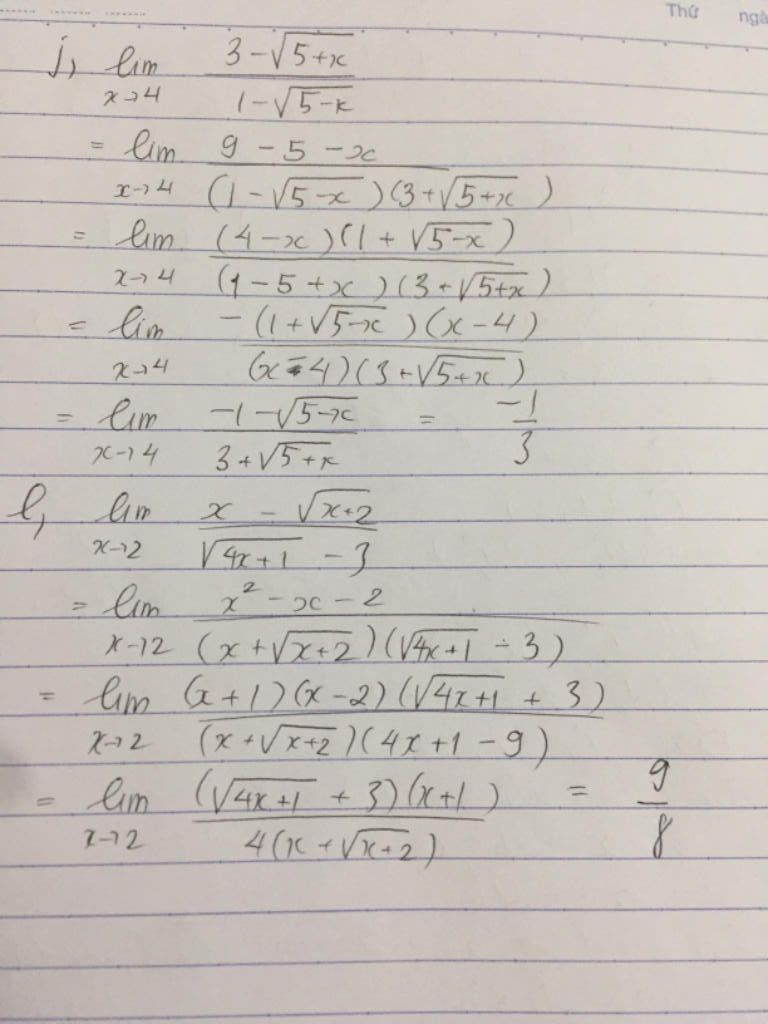 Thứ ngà
j, lim x→4 (3 - √(5+x)) / (1 - √(5-x))
= lim x→4 (9 - 5 - x) / ((1 - √(5-x))(3 + √(5+x)))
= lim x→4 ((4-x)(1 + √(5-x))) / ((1 - 5 + x)(3 + √(5+x)))
= lim x→4 (-(1 + √(5-x))(x - 4)) / ((x - 4)(3 + √(5+x)))
= lim x→4 (-1 - √(5-x)) / (3 + √(5+x)) = -1/3
l, lim x→2 (x - √(x+2)) / (√(4x+1) - 3)
= lim x→2 (x² - x - 2) / ((x + √(x+2))(√(4x+1) - 3))
= lim x→2 ((x+1)(x-2)(√(4x+1) + 3)) / ((x + √(x+2))(4x+1-9))
= lim x→2 ((√(4x+1) + 3)(x+1)) / (4(x + √(x+2))) = 9/8